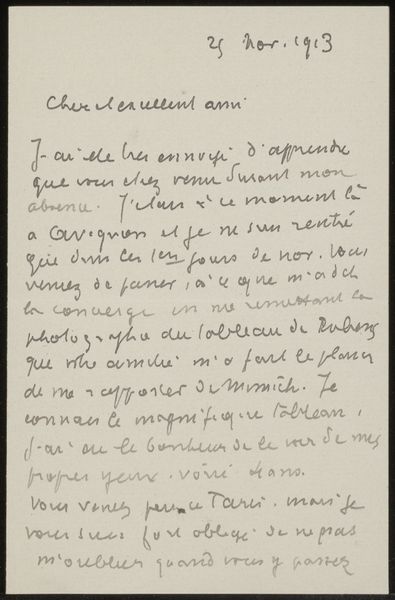 25 Nov. 1913
Cher et excellent ami
J'ai été très ennuyé d'apprendre
que vous étiez venu durant mon
absence. J'étais à ce moment là
a Avignon et je ne suis rentré
que dans les 1ers jours de nov. Vous
veniez de passer, à ce que m'a dit
la concierge en me remettant la
photographie du tableau de Rubens
que votre amitié m'a fait le plaisir
de me rapporter de Munich. Je
connais le magnifique tableau,
j'ai eu le bonheur de le voir de mes
propres yeux. voici 4 ans.
Vous venez peu a Paris. mais je
vous suis fort obligé de ne pas
m'oublier quand vous y passez